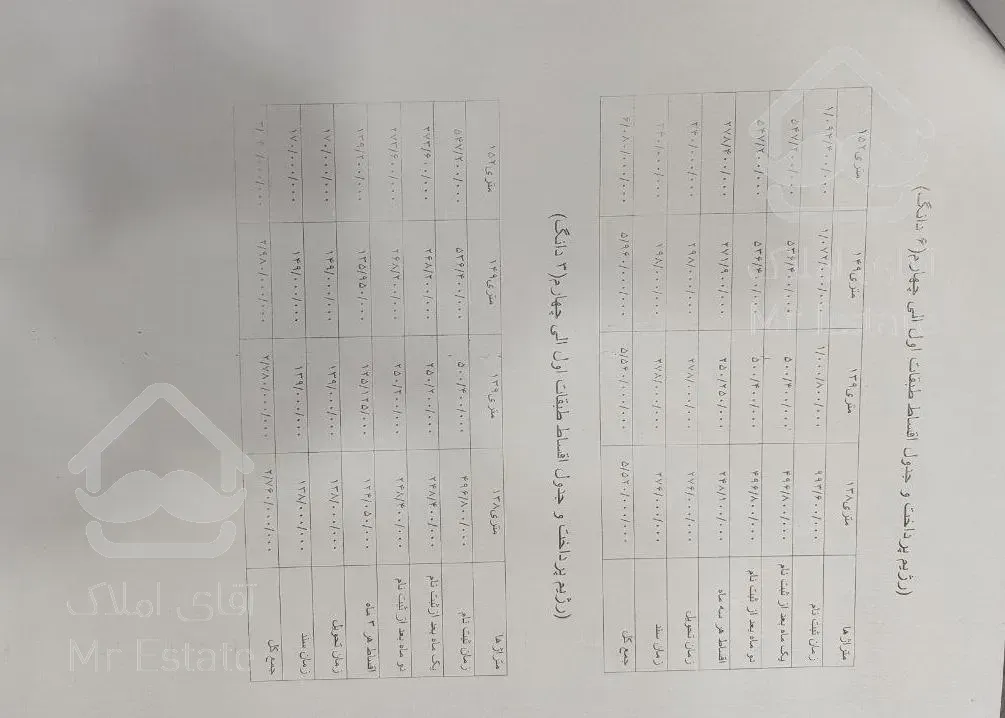 (رژیم پرداخت و جدول اقساط طبقات اول الی چهارم(۶ دانگ)
متراژها ۱۳۸متری ۱۳۹متری ۱۴۹متری ۱۵۲متری
زمان ثبت نام ۹۹۳/۶۰۰/۰۰۰ ۱/۰۰۰/۸۰۰/۰۰۰ ۱/۰۷۲/۸۰۰/۰۰۰ ۱/۰۹۴/۴۰۰/۰۰۰
یک ماه بعد از ثبت نام ۴۹۶/۸۰۰/۰۰۰ ۵۰۰/۴۰۰/۰۰۰ ۵۳۶/۴۰۰/۰۰۰ ۵۴۷/۲۰۰/۰۰۰
دو ماه بعد از ثبت نام ۴۹۶/۸۰۰/۰۰۰ ۵۰۰/۴۰۰/۰۰۰ ۵۳۶/۴۰۰/۰۰۰ ۵۴۷/۲۰۰/۰۰۰
اقساط هر سه ماه ۲۴۸/۱۰۰/۰۰۰ ۲۵۰/۲۵۰/۰۰۰ ۲۷۱/۹۰۰/۰۰۰ ۲۷۸/۴۰۰/۰۰۰
زمان تحویل ۲۷۶/۰۰۰/۰۰۰ ۲۷۸/۰۰۰/۰۰۰ ۲۹۸/۰۰۰/۰۰۰ ۳۴۰/۰۰۰/۰۰۰
زمان سند ۲۷۶/۰۰۰/۰۰۰ ۲۷۸/۰۰۰/۰۰۰ ۲۹۸/۰۰۰/۰۰۰ ۳۴۰/۰۰۰/۰۰۰
جمع کل ۵/۵۲۰/۰۰۰/۰۰۰ ۵/۵۶۰/۰۰۰/۰۰۰ ۵/۹۶۰/۰۰۰/۰۰۰ ۶/۰۸۰/۰۰۰/۰۰۰
(رژیم پرداخت و جدول اقساط طبقات اول الی چهارم(۳ دانگ)
متراژها ۱۳۸متری ۱۳۹متری ۱۴۹متری ۱۵۲متری
زمان ثبت نام ۴۹۶/۸۰۰/۰۰۰ ۵۰۰/۴۰۰/۰۰۰ ۵۳۶/۴۰۰/۰۰۰ ۵۴۷/۲۰۰/۰۰۰
یک ماه بعد ازثبت نام ۲۴۸/۴۰۰/۰۰۰ ۲۵۰/۲۰۰/۰۰۰ ۲۶۸/۲۰۰/۰۰۰ ۲۷۳/۶۰۰/۰۰۰
دو ماه بعد از ثبت نام ۲۴۸/۴۰۰/۰۰۰ ۲۵۰/۲۰۰/۰۰۰ ۲۶۸/۲۰۰/۰۰۰ ۲۷۳/۶۰۰/۰۰۰
اقساط هر ۳ ماه ۱۲۴/۰۵۰/۰۰۰ ۱۲۵/۱۲۵/۰۰۰ ۱۳۵/۹۵۰/۰۰۰ ۱۳۹/۲۰۰/۰۰۰
زمان تحویل ۱۳۸/۰۰۰/۰۰۰ ۱۳۹/۰۰۰/۰۰۰ ۱۴۹/۰۰۰/۰۰۰ ۱۷۰/۰۰۰/۰۰۰
زمان سند ۱۳۸/۰۰۰/۰۰۰ ۱۳۹/۰۰۰/۰۰۰ ۱۴۹/۰۰۰/۰۰۰ ۱۷۰/۰۰۰/۰۰۰
جمع کل ۲/۷۶۰/۰۰۰/۰۰۰ ۲/۷۸۰/۰۰۰/۰۰۰ ۲/۹۸۰/۰۰۰/۰۰۰ ۳/۰۴۰/۰۰۰/۰۰۰
آقای املاک
Mr Estate
آقای املاک
Mr Estate